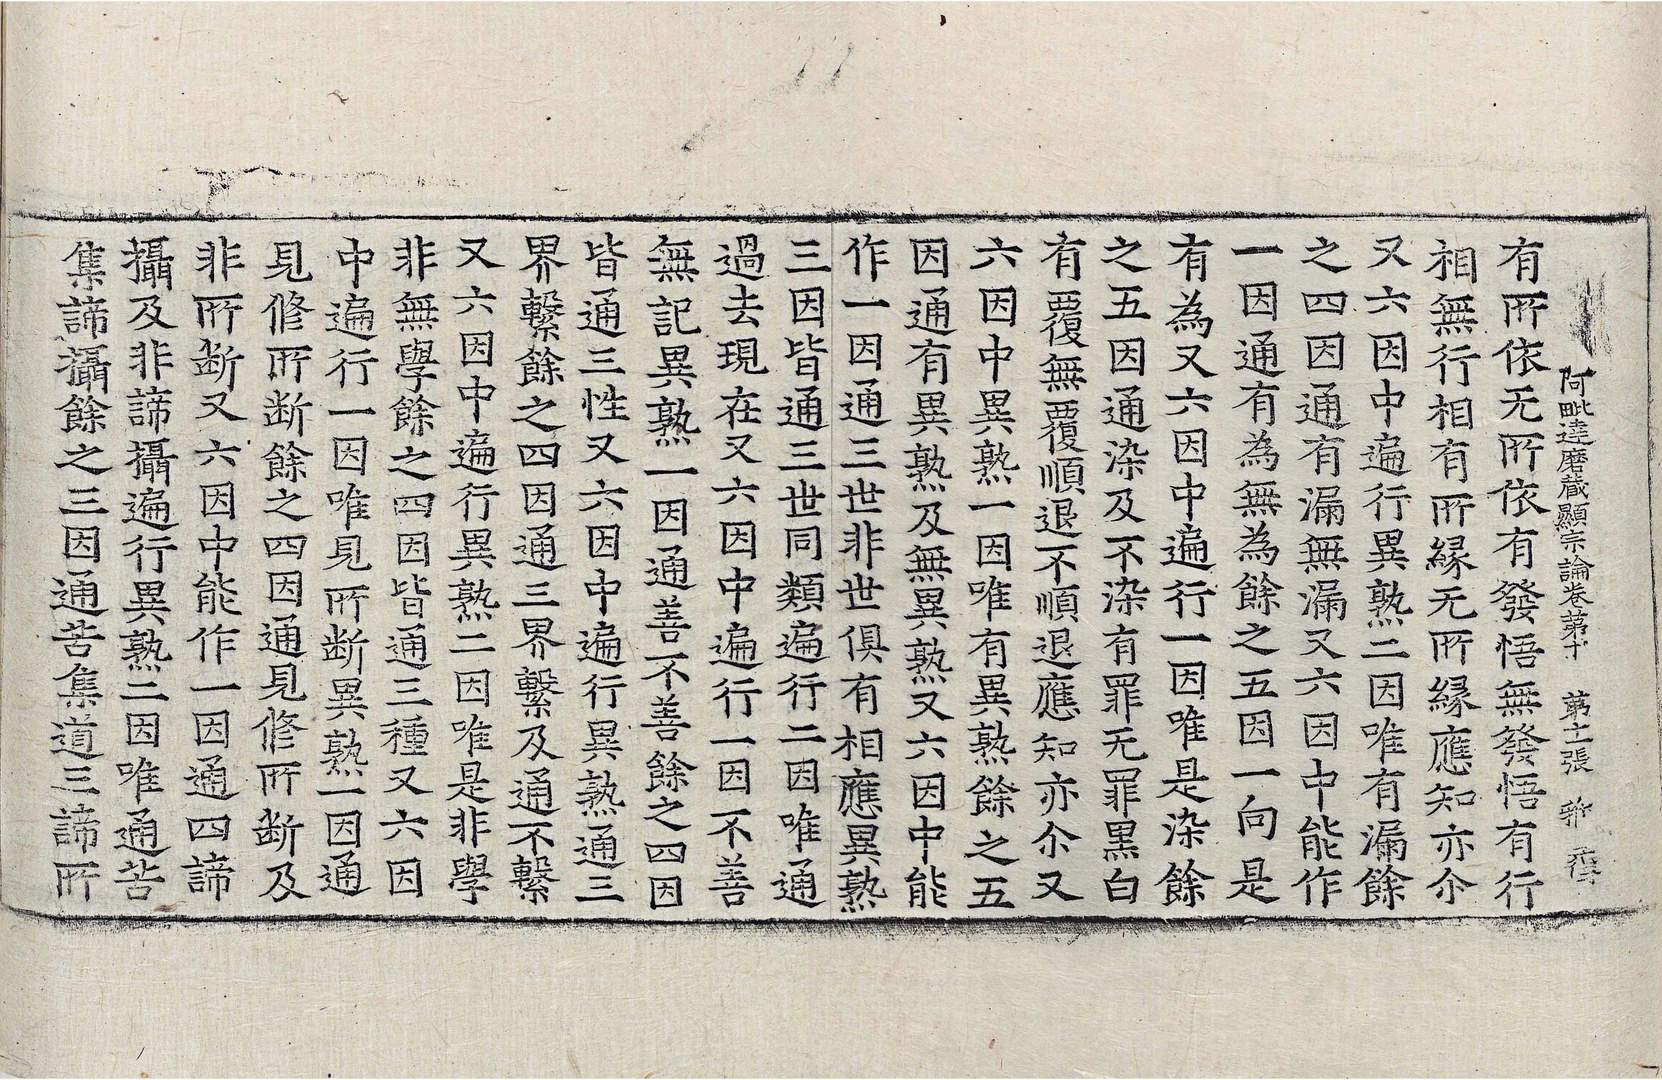 阿毗達磨藏顯宗論卷第十 第十一張 弊
有所依无所依有發悟無發悟有行
相無行相有所緣无所緣應知亦尒
又六因中遍行異熟二因唯有漏餘
之四因通有漏無漏又六因中能作
一因通有為無為餘之五因一向是
有為又六因中遍行一因唯是染餘
之五因通染及不染有罪无罪黑白
有覆無覆順退不順退應知亦尒又
六因中異熟一因唯有異熟餘之五
因通有異熟及無異熟又六因中能
作一因通三世非世俱有相應異熟
三因皆通三世同類遍行二因唯通
過去現在又六因中遍行一因不善
無記異熟一因通善不善餘之四因
皆通三性又六因中遍行異熟通三
界繫餘之四因通三界繫及通不繫
又六因中遍行異熟二因唯是非學
非無學餘之四因皆通三種又六因
中遍行一因唯見所断異熟一因通
見修所断餘之四因通見修所断及
非所断又六因中能作一因通四諦
攝及非諦攝遍行異熟二因唯通苦
集諦攝餘之三因通苦集道三諦所